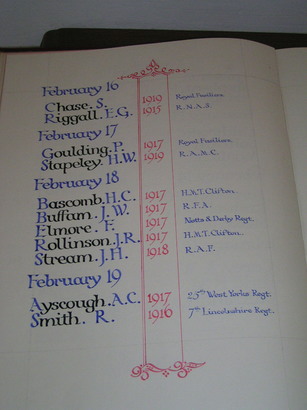 February 16
Chase. S. 1919 Royal Fusiliers
Riggall. E.G. 1915 R.N.A.S.
February 17
Goulding. P. 1917 Royal Fusiliers.
Stapeley. H.W. 1919 R.A.M.C.
February 18
Bascomb. H.C. 1917 H.M.T. Clifton.
Buffam. J.W. 1917 R.F.A.
Elmore. F. 1917 Notts & Derby Regt.
Rollinson. J.R. 1917 H.M.T. Clifton.
Stream. J.H. 1918 R.A.F.
February 19
Ayscough. A.C. 1917 25th West Yorks Regt.
Smith. R. 1916 7th Lincolnshire Regt.